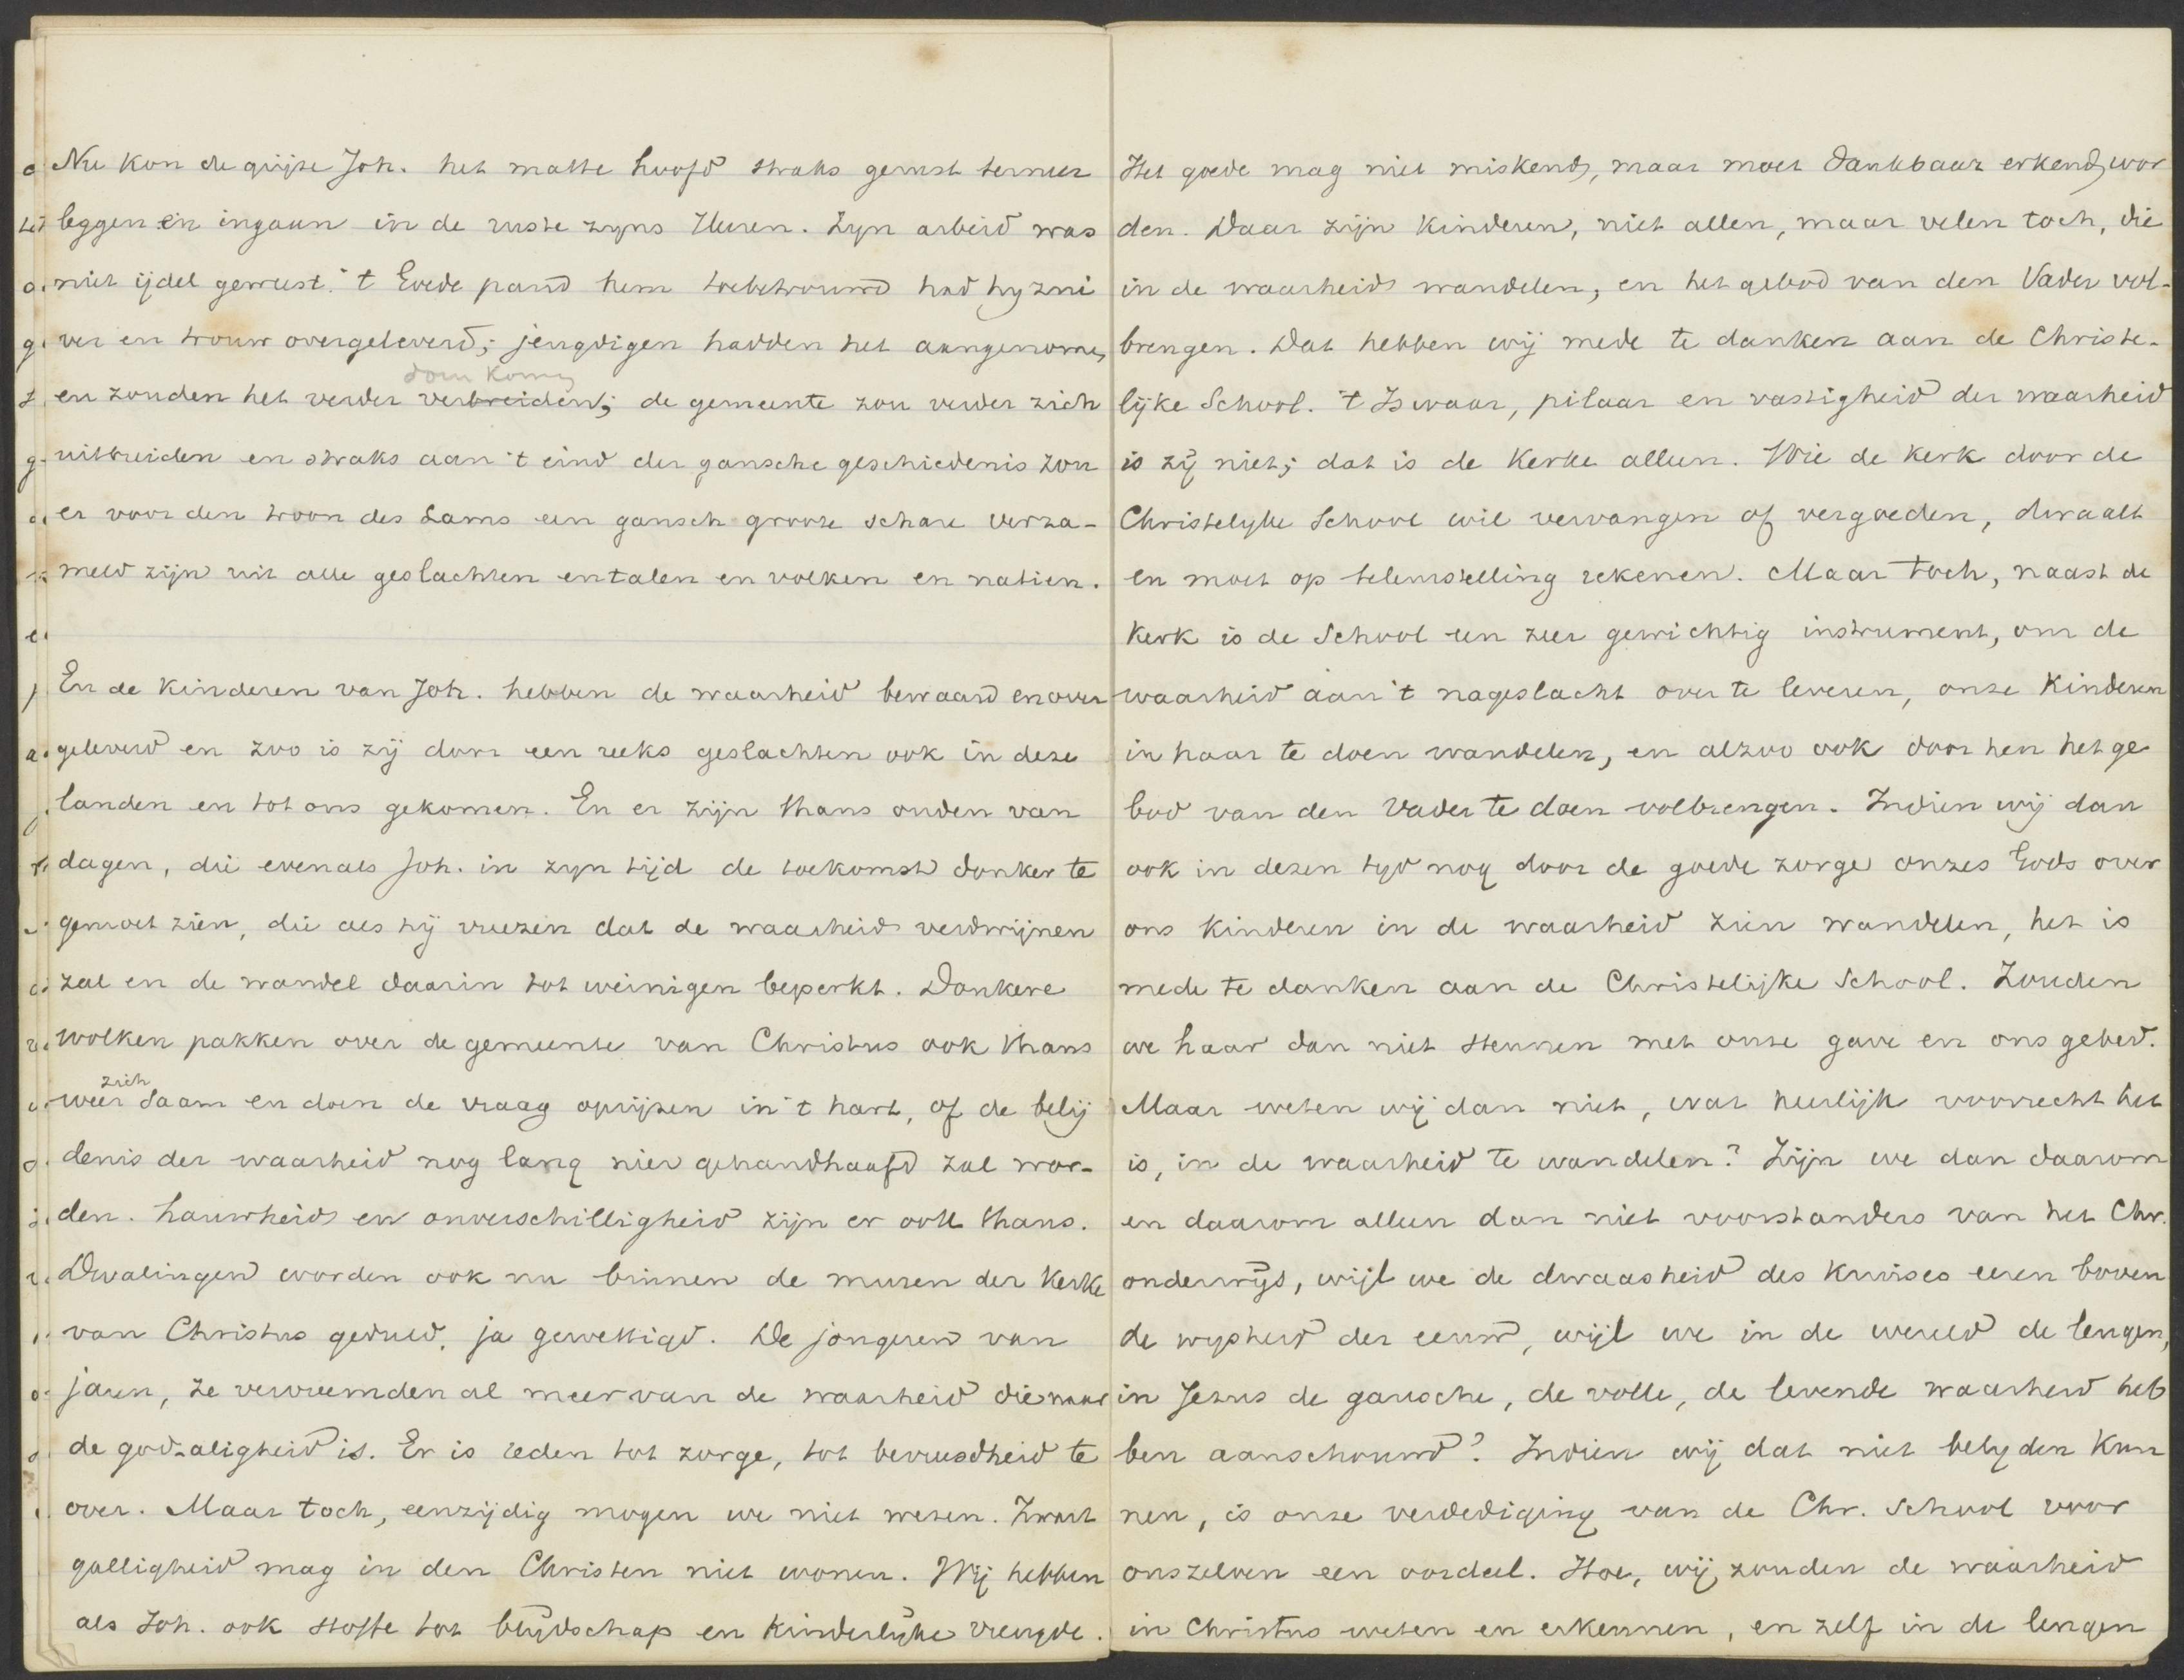 Nu kon de grijze Joh. het matte hoofd straks gerust terneer
leggen en ingaan in de ruste zyns Heren. Zyn arbeid was
niet ijdel geweest. 't Goede pand hem toebetrouwd had hy zui
ver en trouw overgeleverd; jeugdigen hadden het aangenomen,
doen komen
en zouden het verder verbreiden; de gemeente zou verder zich
uitbreiden en straks aan 't eind der gansche geschiedenis zou
er voor den troon des Lams een gansch groote schare verza-
meld zijn uit alle geslachten en talen en volken en natien.
En de kinderen van Joh. hebben de waarheid bewaard en over
geleverd en zoo is zij door een reeks geslachten ook in deze
landen en tot ons gekomen. En er zijn thans ouden van
dagen, die evenals Joh. in zyn tijd de toekomst donker te
gemoet zien, die als hij vreezen dat de waarheid verdwijnen
zal en de wandel daarin tot weinigen beperkt. Donkere
wolken pakken over de gemeente van Christus ook thans
zich
weer saam en doen de vraag oprijzen in 't hart, of de belij
denis der waarheid nog lang hier gehandhaafd zal wor-
den. Lauwheid en onverschilligheid zijn er ook thans.
Dwalingen worden ook nu binnen de muren der kerke
van Christus geduld, ja gewettigd. De jongeren van
jaren, ze vervreemden al meer van de waarheid die naar
de godzaligheid is. Er is reden tot zorge, tot bevreesdheid te
over. Maar toch, eenzijdig mogen we niet wezen. Zwart
galligheid mag in den Christen niet wonen. Wij hebben
als Joh. ook stoffe tot blijdschap en kinderlijke vreugde.
Het goede mag niet miskend, maar moet dankbaar erkend wor
den. Daar zijn kinderen, niet allen, maar velen toch, die
in de waarheid wandelen, en het gebod van den Vader vol-
brengen. Dat hebben wij mede te danken aan de Christe-
lijke School. 't Is waar, pilaar en vastigheid der waarheid
is zij niet; dat is de Kerke alleen. Wie de kerk door de
Christelyke School wil vervangen of vergoeden, dwaalt
en moet op teleurstelling rekenen. Maar toch, naast de
Kerk is de School een zeer gewichtig instrument, om de
waarheid aan 't nageslacht over te leveren, onze kinderen
in haar te doen wandelen, en alzoo ook door hen het ge
bod van den Vader te doen volbrengen. Indien wij dan
ook in dezen tyd nog door de goede zorge onzes Gods over
ons kinderen in de waarheid zien wandelen, het is
mede te danken aan de Christelijke School. Zouden
we haar dan niet steunen met onze gave en ons gebed.
Maar weten wij dan niet, wat heerlijk voorrecht het
is, in de waarheid te wandelen? Zijn we dan daarom
en daarom alleen dan niet voorstanders van het Chr.
onderwijs, wijl we de dwaasheid des kruises eeren boven
de wysheid der eeuw, wijl we in de wereld de leugen,
in Jezus de gansche, de volle, de levende waarheid heb
ben aanschouwd? Indien wij dat niet belyden kun
nen, is onze verdediging van de Chr. School voor
onszelven een oordeel. Hoe, wij zouden de waarheid
in Christus weten en erkennen, en zelf in de leugen